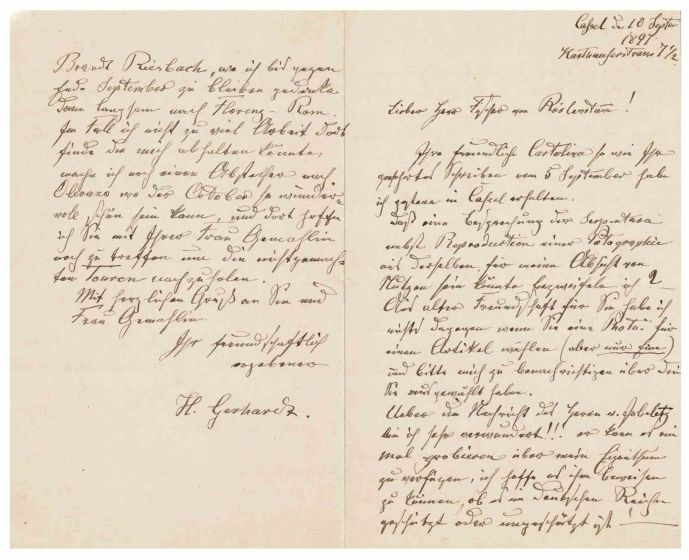 Casel de 10 Septer
1897
Karthauserstrasse 7 1/2
Lieber Herr Fischer von Röslerstamm!
Ihre freundliche Cartolina so wie Ihr
geehrtes Schreiben vom 5 September habe
ich gestern in Casel erhalten.
Daß eine Besprechung der Serpentara
nebst Reproduction einer Potographie
aus derselben für meine Absicht von
Nutzen sein könnte bezweifele ich ?
Aus alter Freundschaft für Sie habe ich
nichts dagegen wenn Sie eine Photo. für
einen Artikel wählen (aber nur Eine)
und bitte mich zu benachrichtigen über die
Sie ausgewählt haben.
Ueber die Nachricht des Herrn v.
bin ich sehr verwundert!!! er kann es ein
mal probieren über mein Eigenthum
zu verfügen, ich hoffe es ihm beweisen
zu können, ob es im deutschen Reiche
geschützt oder ungeschützt ist
Brandt Riesbach, wo ich bis gegen
Ende September zu bleiben gedenke
dann langsam nach Florenz - Rom.
Im Fall ich nicht zu viel Arbeit dort
finde die mich abhalten könnte,
mache ich noch einen Abstecher nach
Olevano wo der October so wunder=
voll schön sein kann, und dort hoffe
ich Sie mit Ihrer Frau Gemahlin
noch zu treffen um die nichtgemach=
ten Touren nachzuholen.
Mit herzlichen Gruß an Sie und
Frau Gemahlin
Ihr freundschaftlich
ergebener
H. Gerhardt.